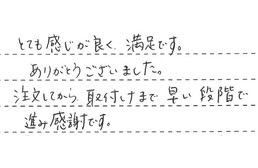 とても感じが良く、満足です。
ありがとうございました。
注文してから、取付けまで早い段階で
進み感謝です。